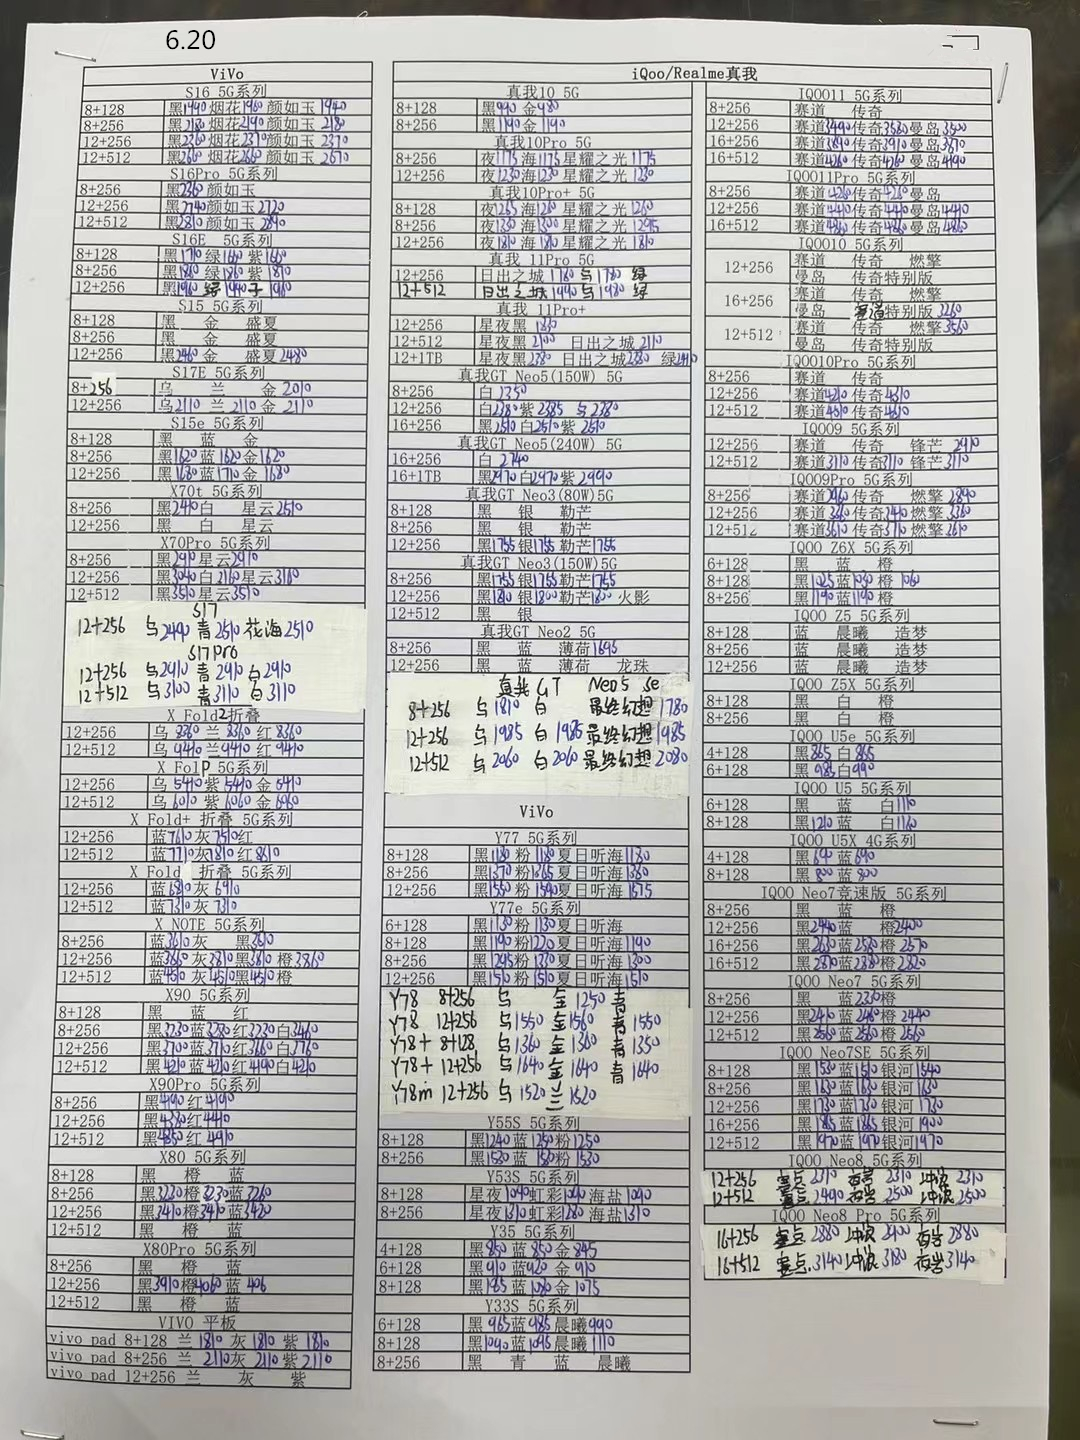 6.20
ViVo
S16 5G系列
8+128 黑1990 烟花1960 颜如玉 1940
8+256 黑2180 烟花2190 颜如玉 2180
12+256 黑2360 烟花2370 颜如玉 2370
12+512 黑2660 烟花2660 颜如玉 2670
S16Pro 5G系列
8+256 黑2360 颜如玉
12+256 黑2740 颜如玉 2720
12+512 黑2810 颜如玉 2890
S16E 5G系列
8+128 黑1710 绿1660 紫1660
8+256 黑1860 绿1860 紫 1870
12+256 黑1960 绿 1940 子 1960
S15 5G系列
8+128 黑 金 盛夏
8+256 黑 金 盛夏
12+256 黑2460 金 盛夏 2480
S17E 5G系列
8+256 乌 兰 金 2010
12+256 乌2110 兰 2110 金 2110
S15e 5G系列
8+128 黑 蓝 金
8+256 黑1620 蓝 1620 金1620
12+256 黑1680 蓝1710 金 1680
X70t 5G系列
8+256 黑2410 白 星云 2510
12+256 黑 白 星云
X70Pro 5G系列
8+256 黑2910 星云2910
12+256 黑3040 白 2160 星云 3160
12+512 黑3510 星云3510
S17
12+256 乌2490 青2510 花海2510
S17pro
12+256 乌2910 青 2910 白2910
12+512 乌3100 青3110 白3110
X Fold2折叠
12+256 乌 8360 兰 8360 红 8360
12+512 乌 9410 兰9410 红 9410
X FolP 5G系列
12+256 乌 5410 紫 5410 金 5410
12+512 乌 6010 紫 6060 金 6060
X Fold+ 折叠 5G系列
12+256 蓝7610 灰7510 红
12+512 蓝7710 灰7810 红 8610
X Fold 折叠 5G系列
12+256 蓝 6810 灰 6910
12+512 蓝 7310 灰 7310
X NOTE 5G系列
8+256 蓝3610 灰 黑3610
12+256 蓝3660 灰3810 黑3810 橙 3860
12+512 蓝4510 灰4510 黑4510 橙
X90 5G系列
8+128 黑 蓝 红
8+256 黑3230 蓝3280 红3230 白3460
12+256 黑3700 蓝3710 红3660 白3760
12+512 黑4210 蓝4210 红4190 白4210
X90Pro 5G系列
8+256 黑4190 红4190
12+256 黑4380 红4410
12+512 黑4850 红 4910
X80 5G系列
8+128 黑 橙 蓝
8+256 黑3230 橙 3230 蓝3260
12+256 黑3410 橙3410 蓝3420
12+512 黑 橙 蓝
X80Pro 5G系列
8+256 黑 橙 蓝
12+256 黑3910 橙4060 蓝 406
12+512 黑 橙 蓝
VIVO 平板
vivo pad 8+128 兰 1810 灰 1810 紫 1810
vivo pad 8+256 兰 2110 灰 2110 紫 2110
vivo pad 12+256 兰 灰 紫
iQoo/Realme真我
真我10 5G
8+128 黑990 金980
8+256 黑1190 金 1190
真我10Pro 5G
8+256 夜1175 海1175 星耀之光 1175
12+256 夜1230 海1230 星耀之光 1230
真我10Pro+ 5G
8+128 夜1265 海1260 星耀之光 1260
8+256 夜1330 海1300 星耀之光 1295
12+256 夜1810 海 1810 星耀之光 1810
真我 11Pro 5G
12+256 日出之城 1780 乌 1780 绿
12+512 日出之城 1990 乌 1980 绿
真我 11Pro+
12+256 星夜黑 1830
12+512 星夜黑 2100 日出之城 2110
12+1TB 星夜黑2380 日出之城2380 绿2410
真我GT Neo5(150W) 5G
8+256 白 2350
12+256 白2380 紫 2385 乌 2380
16+256 黑2510 白2510 紫 2510
真我GT Neo5(240W) 5G
16+256 白 2740
16+1TB 黑2970 白2970 紫 2990
真我GT Neo3(80W)5G
8+128 黑 银 勒芒
8+256 黑 银 勒芒
12+256 黑1755 银1755 勒芒 1755
真我GT Neo3(150W)5G
8+256 黑1755 银1755 勒芒1755
12+256 黑1810 银1800 勒芒1800 火影
12+512 黑 银
真我GT Neo2 5G
8+256 黑 蓝 薄荷 1695
12+256 黑 蓝 薄荷 龙珠
真我 GT Neo5 Se
8+256 乌 1810 白 最终幻想 1780
12+256 乌 1985 白 1985 最终幻想 1985
12+512 乌 2060 白 2060 最终幻想 2080
ViVo
Y77 5G系列
8+128 黑1180 粉 1180 夏日听海 1180
8+256 黑1370 粉1365 夏日听海 1360
12+256 黑1550 粉 1590 夏日听海 1575
Y77e 5G系列
6+128 黑1130 粉 1130 夏日听海
8+128 黑1190 粉1220 夏日听海 1190
8+256 黑1295 粉1330 夏日听海 1300
12+256 黑1510 粉 1510 夏日听海 1510
Y78 8+256 乌 金 1250 青
Y78 12+256 乌1550 金1560 青 1550
Y78+ 8+128 乌1360 金 1360 青 1350
Y78+ 12+256 乌1640 金 1640 青 1640
Y78m 12+256 乌 1520 兰 1520
Y55S 5G系列
8+128 黑1240 蓝 1250 粉 1250
8+256 黑1530 蓝 1580 粉 1530
Y53S 5G系列
8+128 星夜 1040 虹彩1040 海盐 1090
8+256 星夜 1310 虹彩1280 海盐 1310
Y35 5G系列
4+128 黑850 蓝 850 金 845
6+128 黑910 蓝920 金 910
8+128 黑985 蓝 1080 金 1075
Y33S 5G系列
6+128 黑 965 蓝 985 晨曦990
8+128 黑1090 蓝 1095 晨曦 1110
8+256 黑 青 蓝 晨曦
IQOO11 5G系列
8+256 赛道 传奇
12+256 赛道3490 传奇3580 曼岛 3500
16+256 赛道3890 传奇3910 曼岛 3870
16+512 赛道4260 传奇4260 曼岛 4190
IQOO11Pro 5G系列
8+256 赛道4260 传奇4260 曼岛
12+256 赛道4410 传奇4410 曼岛 4410
16+512 赛道4860 传奇4860 曼岛 4860
IQOO10 5G系列
12+256 赛道 传奇 燃擎
曼岛 传奇特别版
16+256 赛道 传奇 燃擎
曼岛 赛道特别版 3260
12+512 赛道 传奇 燃擎 3560
曼岛 传奇特别版
IQOO10Pro 5G系列
8+256 赛道 传奇
12+256 赛道4210 传奇 4310
12+512 赛道4610 传奇 4610
IQOO9 5G系列
12+256 赛道 传奇 锋芒 2910
12+512 赛道3110 传奇3110 锋芒 3110
IQOO9Pro 5G系列
8+256 赛道2960 传奇 燃擎 2890
12+256 赛道3360 传奇2410 燃擎 3360
12+512 赛道3610 传奇3710 燃擎 2610
IQOO Z6X 5G系列
6+128 黑 蓝 橙
8+128 黑1025 蓝1030 橙 1060
8+256 黑1190 蓝1190 橙
IQOO Z5 5G系列
8+128 蓝 晨曦 造梦
8+256 蓝 晨曦 造梦
12+256 蓝 晨曦 造梦
IQOO Z5X 5G系列
8+128 黑 白 橙
8+256 黑 白 橙
IQOO U5e 5G系列
4+128 黑865 白 865
6+128 黑 985 白990
IQOO U5 5G系列
6+128 黑 蓝 白1110
8+128 黑1210 蓝 白1160
IQOO U5X 4G系列
4+128 黑690 蓝 690
8+128 黑 800 蓝 800
IQOO Neo7竞速版 5G系列
8+256 黑 蓝 橙
12+256 黑2440 蓝 橙2400
16+256 黑2630 蓝2580 橙 2570
16+512 黑2870 蓝2880 橙 2820
IQOO Neo7 5G系列
8+256 黑 蓝2330 橙
12+256 黑2410 蓝2460 橙 2440
12+512 黑2560 蓝2560 橙 2560
IQOO Neo7SE 5G系列
8+128 黑1530 蓝1510 银河 1540
8+256 黑1630 蓝1630 银河 1630
12+256 黑1730 蓝1730 银河 1730
16+256 黑1985 蓝1865 银河 1900
12+512 黑1970 蓝1970 银河1970
IQOO Neo8 5G系列
12+256 赛点 2310 夜岩 2310 冲浪 2310
12+512 赛点 2490 夜岩 2500 冲浪 2500
IQOO Neo8 Pro 5G系列
16+256 赛点 2880 冲浪 2900 夜岩 2880
16+512 赛点.3140 冲浪 3180 夜岩 3140